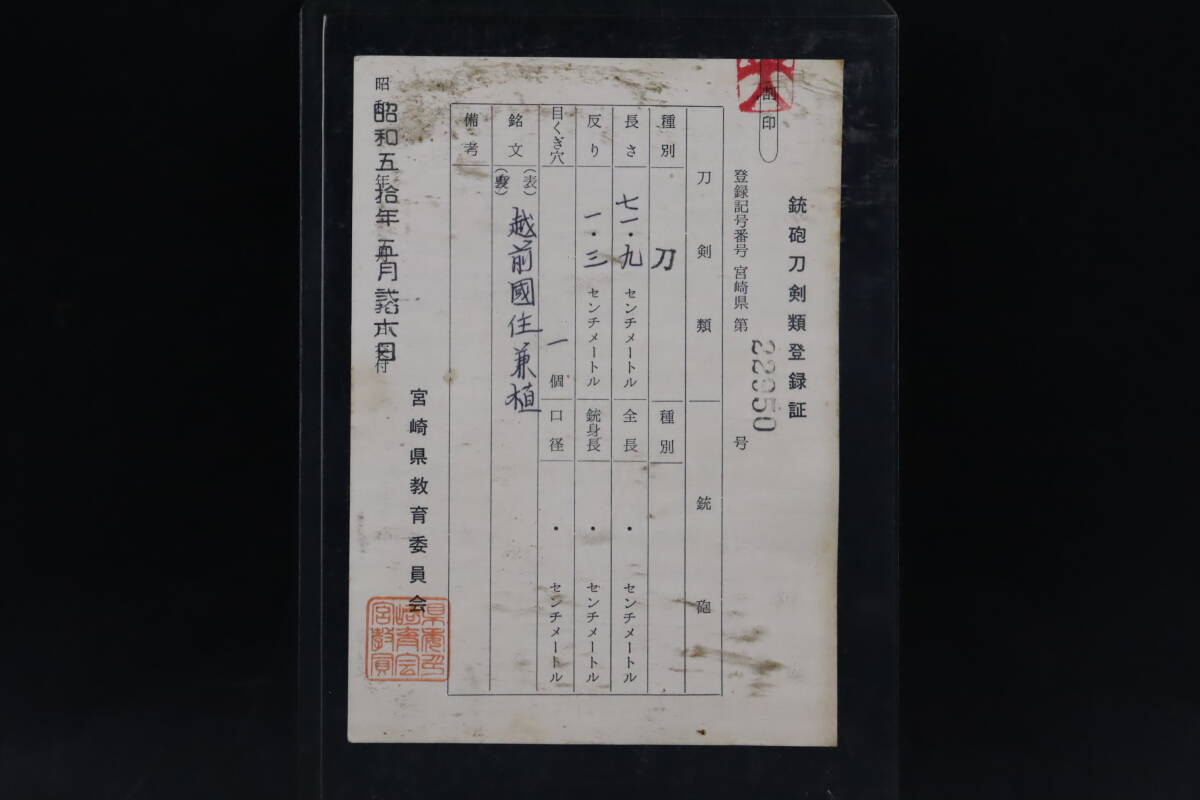 割印
銃砲刀剣類登録証
登録記号番号 宮崎県 第 22950 号
刀剣類 銃砲
種別 刀 種別
長さ 七一・九 センチメートル 全長 ・ センチメートル
反り 一・三 センチメートル 銃身長 ・ センチメートル
目くぎ穴 一個 口径 ・ センチメートル
銘文 (表) 越前國住兼植
(裏)
備考
昭和五拾年五月弐拾六日
交付
宮崎県教育委員会